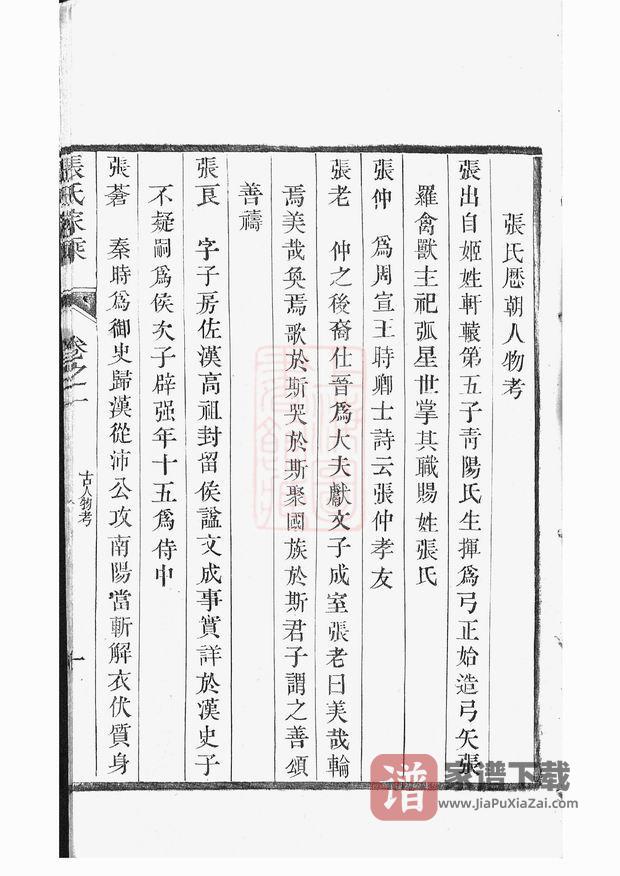 張氏歷朝人物考
張出自姬姓軒轅第五子青陽氏生揮為弓正始造弓矢張
羅禽獸主祀弧星世掌其職賜姓張氏
張仲　為周宣王時卿士詩云張仲孝友
張老　仲之後裔仕晉為大夫獻文子成室張老曰美哉輪
焉美哉奐焉歌於斯哭於斯聚國族於斯君子謂之善頌
善禱
張良　字子房佐漢高祖封留侯謚文成事實詳於漢史子
不疑嗣為侯次子辟强年十五為侍中
張蒼　秦時為御史歸漢從沛公攻南陽當斬解衣伏質身
張氏家乘
卷之一
古人物考
一
谱
家谱下载
www.JiaPuXiaZai.com